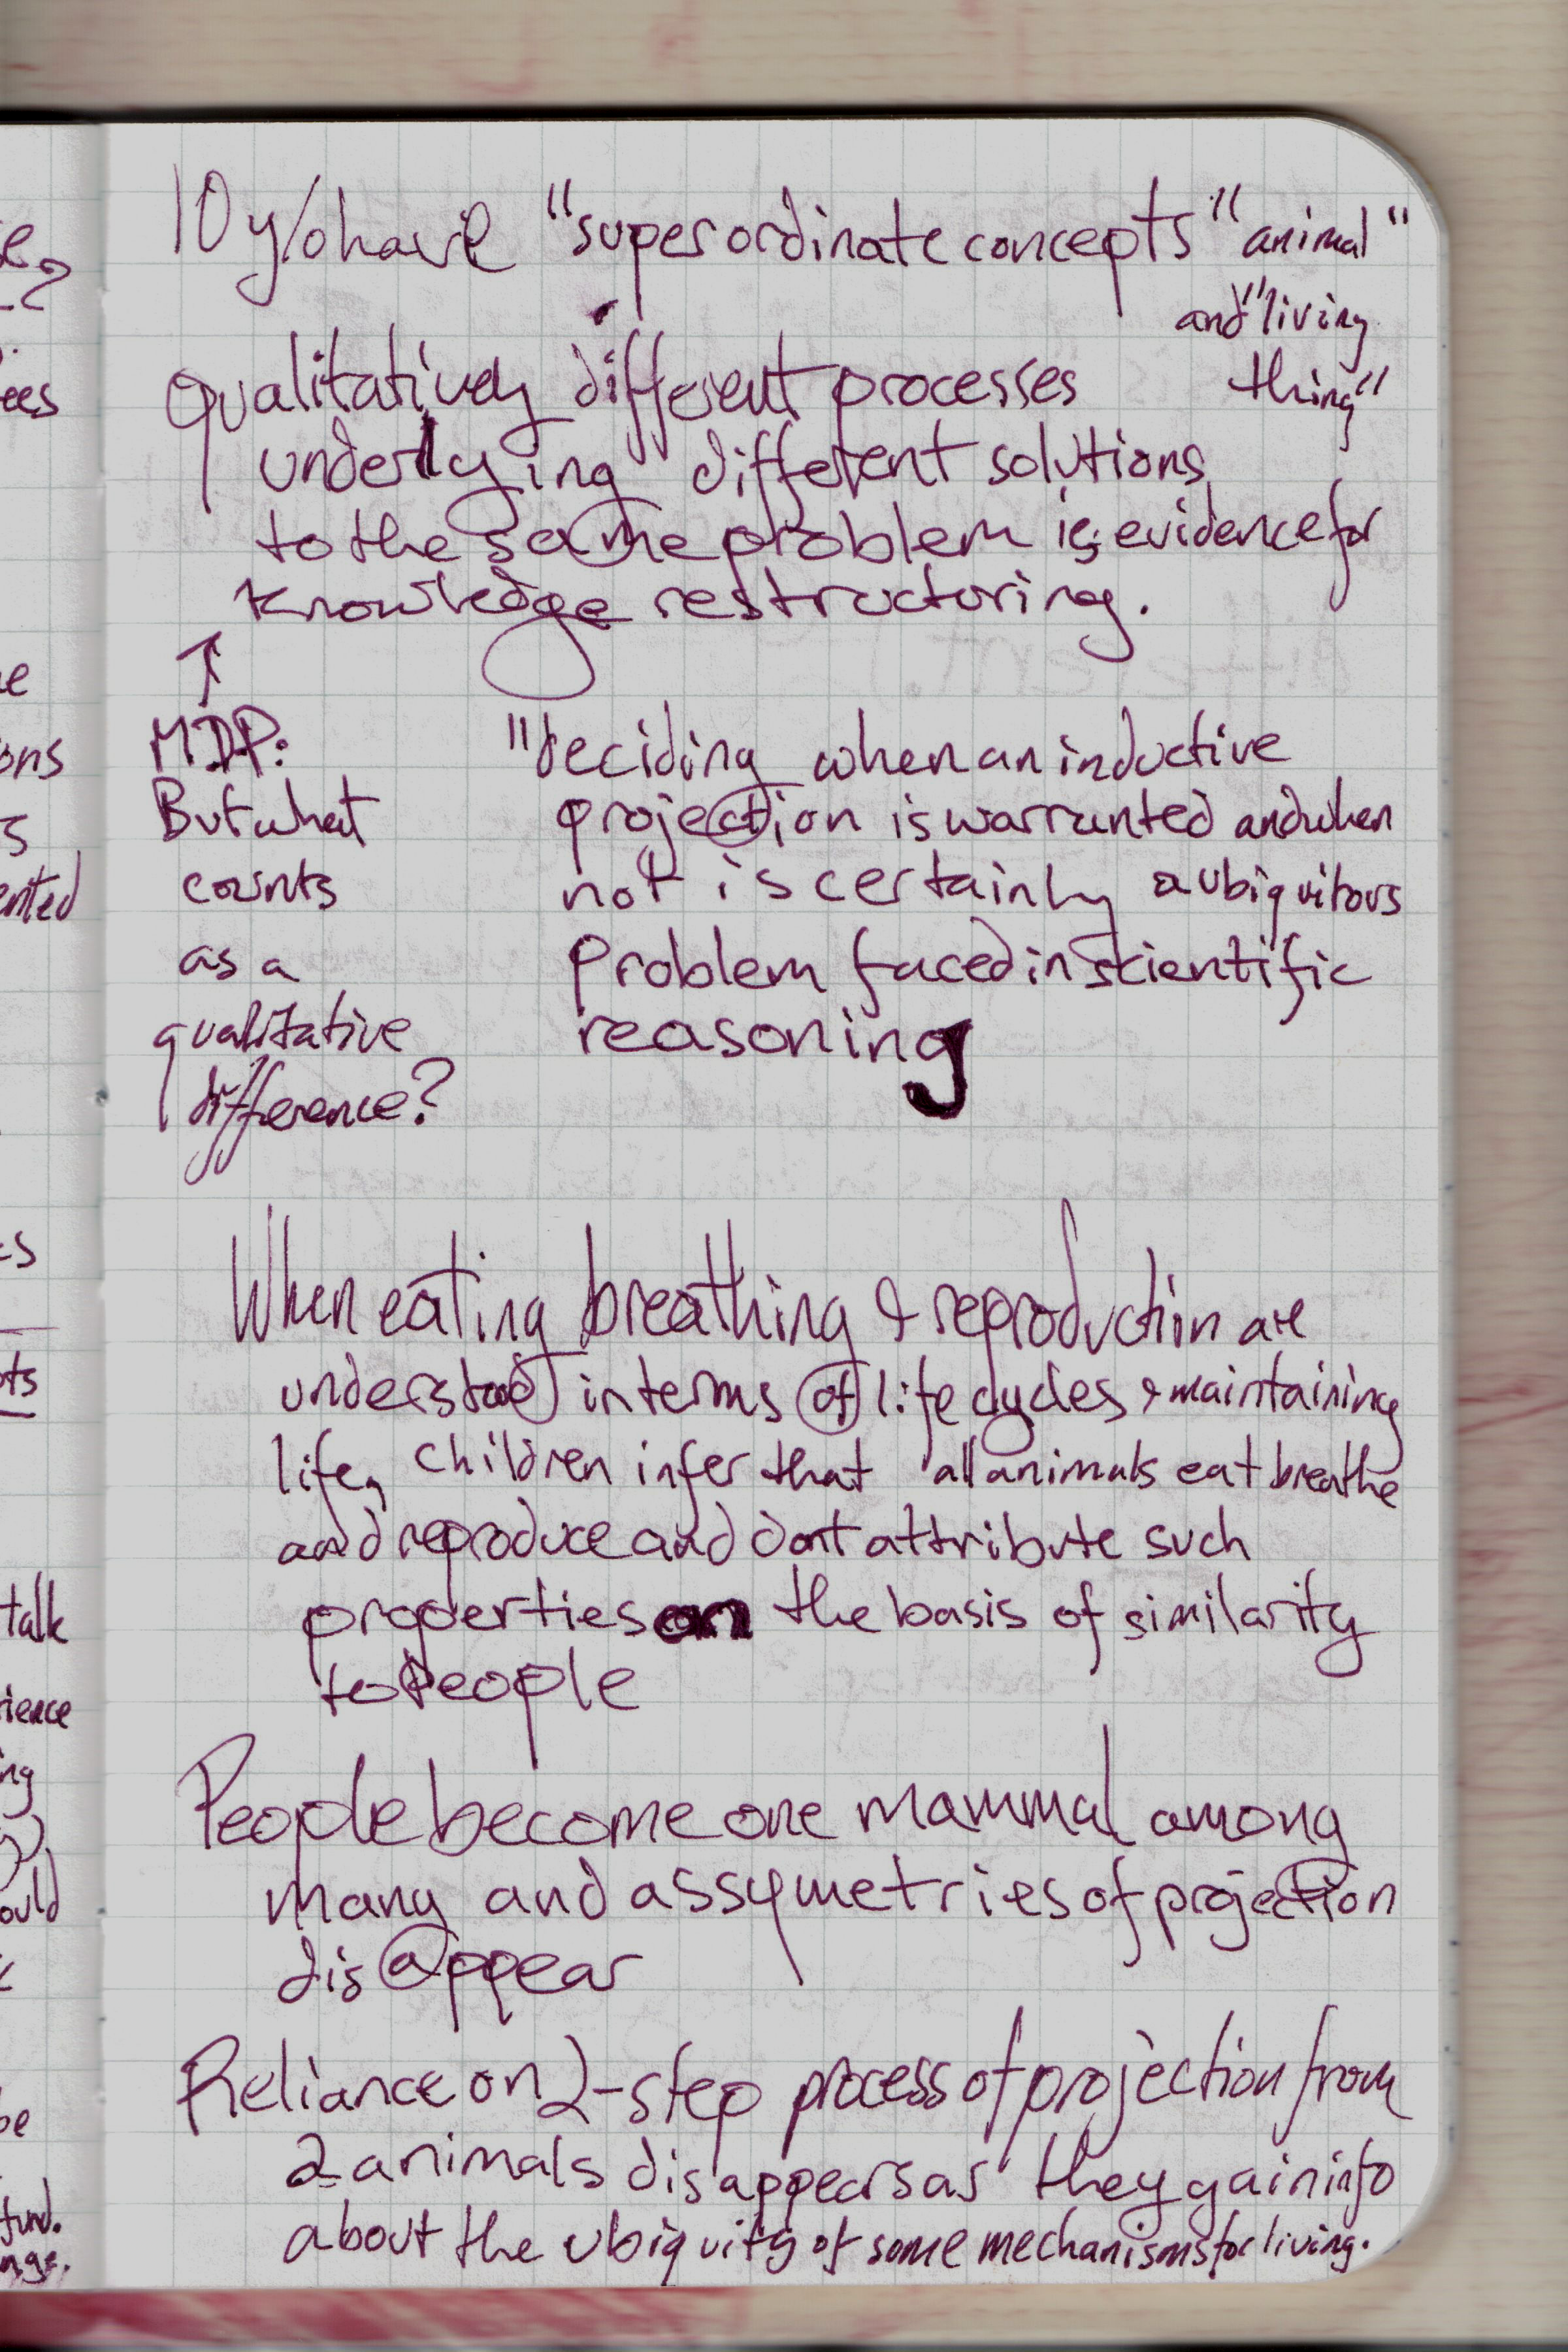 10 y/o have "superordinate concepts "animal"
and "living
thing"
Qualitatively different processes
underlying different solutions
to the same problem is evidence for
knowledge restructuring.
↑
MDP:
But what
counts
as a
qualitative
difference?
"deciding when an inductive
projection is warranted and when
not is certainly a ubiquitous
problem faced in scientific
reasoning
When eating breathing & reproduction are
understood in terms of life cycles & maintaining
life, children infer that all animals eat breathe
and reproduce and dont attribute such
properties on the basis of similarity
to people
People become one mammal among
many and assymetries of projection
disappear
Reliance on 2-step process of projection from
2 animals disappears as they gain info
about the ubiquity of some mechanisms for living.
talk
fund.